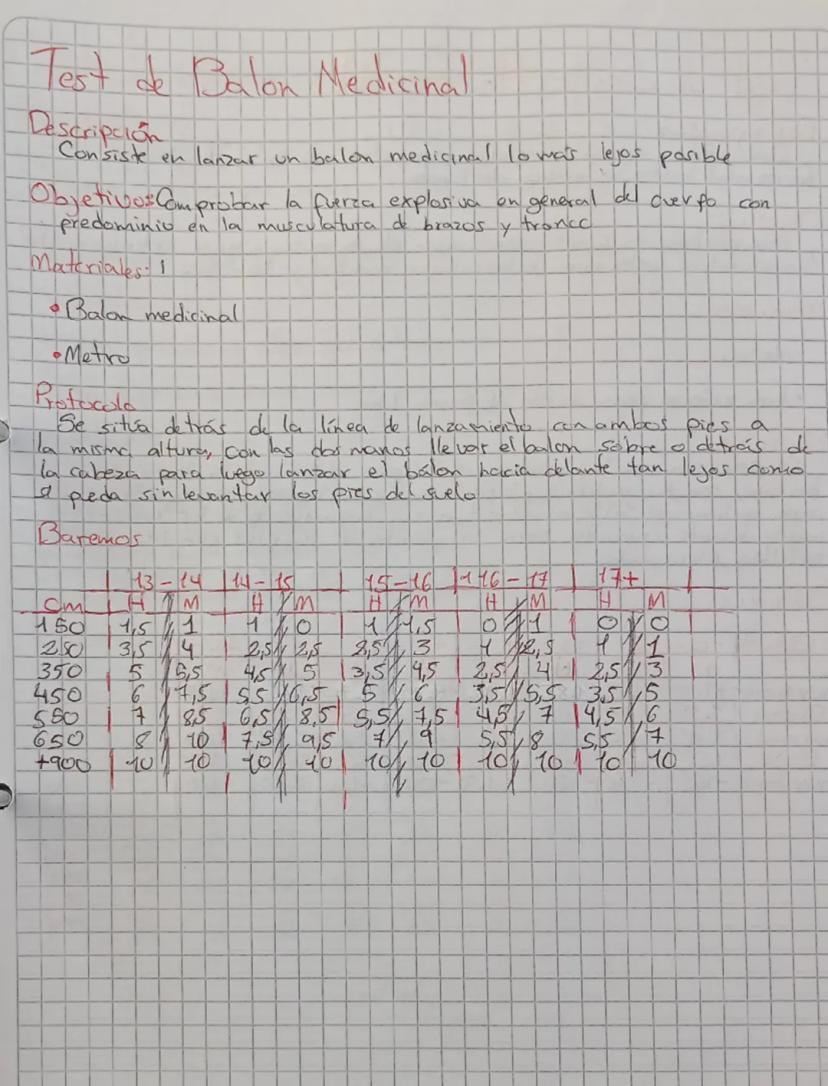 Test de Balon Medicinal
Descripción
Consiste en lanzar un balon medicinal lo más lejos posible
Objetivos: Comprobar la fuerza explosiva en general del cuerpo con
predominio en la musculatura de brazos y tronco
Materiales: 1
• Balon medicinal
• Metro
Protocolo
Se situa detrás de la línea de lanzamiento con ambos pies a
la misma altura, con las dos manos llevar el balon sobre o detrás de
la cabeza para luego lanzar el balon hacia delante tan lejos como
pueda sin levantar los pies del suelo
Baremos
13-14 14-15 15-16 16-17 17+
Cm H M H M H M H M H M
150 1,5 1 1 0 1 1,5 0 1 0 0
250 3,5 4 2,5 2,5 2,5 3 1 2,5 1 1
350 5 5,5 4,5 5 3,5 4,5 2,5 4 2,5 3
450 6 7,5 5,5 6,5 5 6 3,5 5,5 3,5 5
550 7 8,5 6,5 8,5 5,5 7,5 4,5 7 4,5 6
650 8 10 7,5 9,5 7 9 5,5 8 5,5 7
+900 10 10 10 10 10 10 10 10 10 10